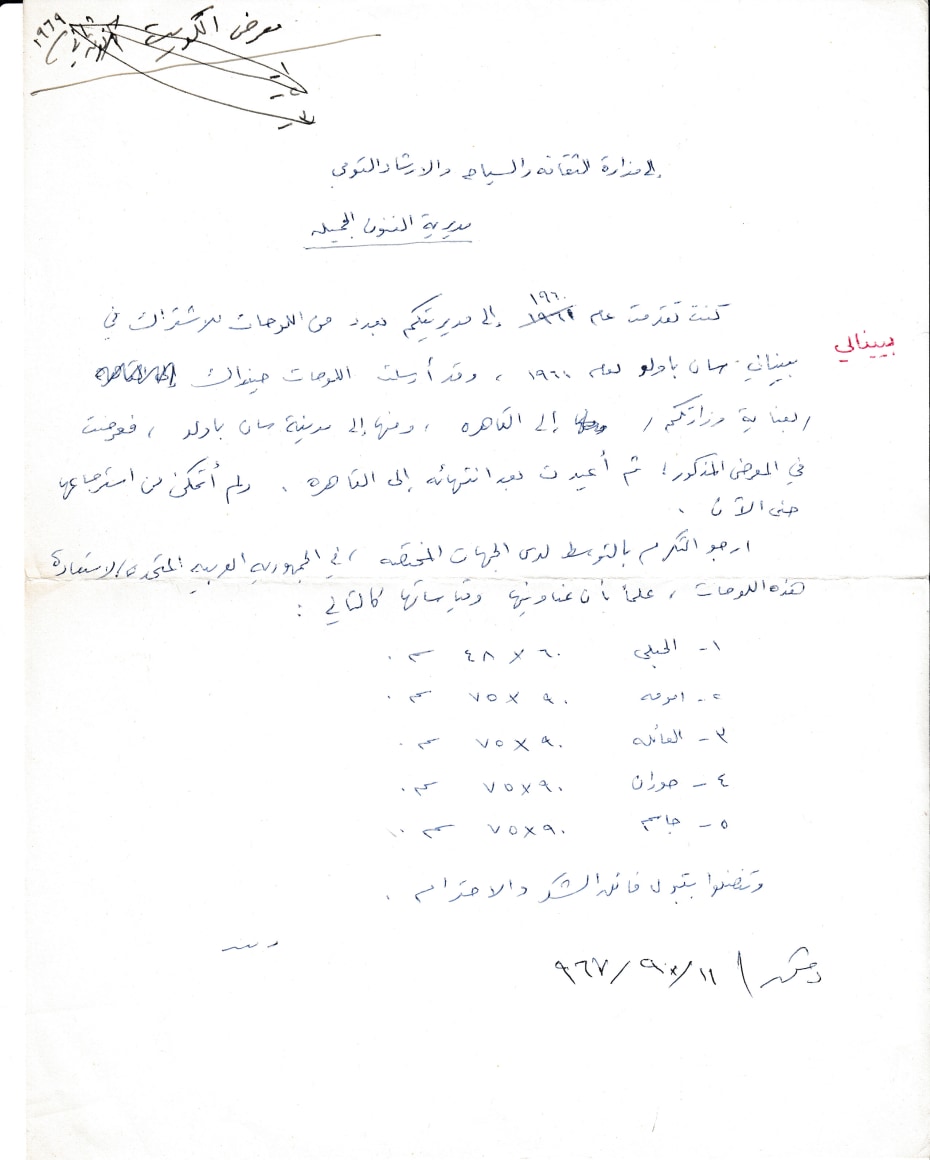 معرض الكويت ١٩٦٩
١-
٢-
٣-
إلى وزارة الثقافه والسياحه والارشاد القومي
مديرية الفنون الجميله
كنت تقدمت عام ١٩٦٠ إلى مديريتكم بعدد من اللوحات للاشتراك في
بيينالي
بيينالي سان باولو لعام ١٩٦٠ ، وقد أرسلت اللوحات حينذاك
/بعناية وزارتكم/ إلى القاهره ، ومنها إلى مدينة سان باولو ، فعرضت
في المعرض المذكور؛ ثم أعيدت بعد انتهائه إلى القاهره . ولم أتمكن من استرجاعها
حتى الآن .
ارجو التكرم بالتوسط لدى الجهات المختصه ، في الجمهوريه العربيه المتحده ، لاستعادة
هذه اللوحات ، علماً بأن عناوينها وقياساتها كالتالي :
١- الحبلى ٦٠ × ٤٨ سم .
٢- امومه ٩٠ × ٧٥ سم .
٣- العائله ٩٠ × ٧٥ سم .
٤- حوران ٩٠ × ٧٥ سم .
٥- جاسم ٩٠ × ٧٥ سم ..
وتفضلوا بقبول فائق الشكر والاحترام .
دمشق / ١١/ /٩٦٧